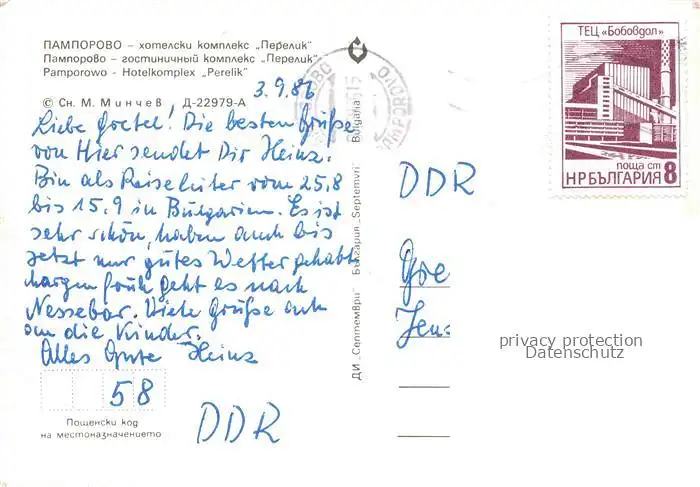 ПАМПОРОВО – хотелски комплекс „Перелик"
Пампорово – гостиничный комплекс „Перелик"
Pamporowo - Hotelkomplex „Perelik"
3.9.86
© Сн. М. Минчев, Д-22979-А
Liebe Goetel! Die besten Grüße
von Hier sendet Dir Heinz.
Bin als Reiseleiter vom 25.8
bis 15.9 in Bulgarien. Es ist
sehr schön, haben auch bis
jetzt nur gutes Wetter gehabt
morgen früh geht es nach
Nessebar. Viele Grüße auch
an die Kinder.
Alles Gute Heinz
58
Пощенски код
на местоназначението
DDR
ДИ „Септември" България „Septemvri" Bulgaria
ТЕЦ «Бобовдол»
поща ст 8
НР БЪЛГАРИЯ
DDR
Goe
Jens
privacy protection
Datenschutz